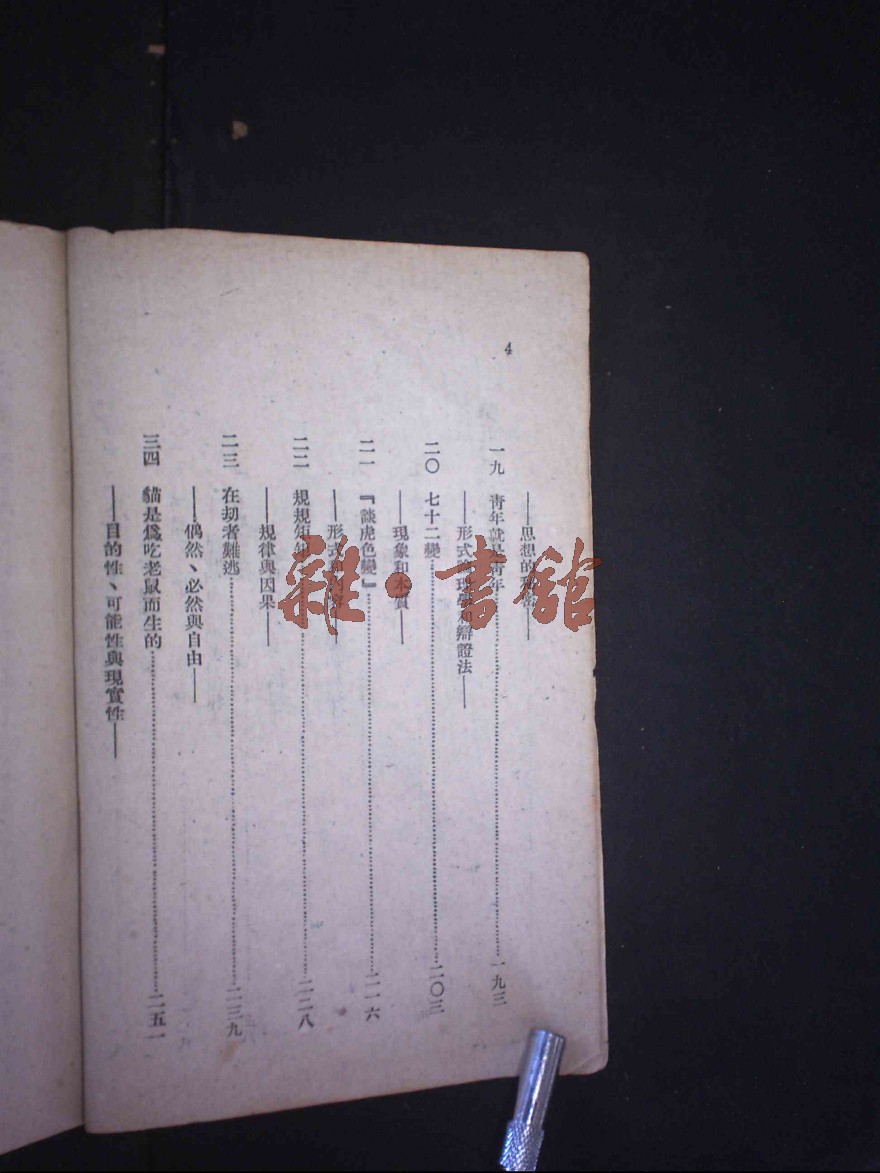 4
——思想的
一九 青年就是青年……一九三
——形式論理學和辯證法——
二〇 七十二變……二〇三
——現象和本質——
二一 『談虎色變』……二一六
——形式
二二 規規矩矩……二二八
——規律與因果——
二三 在劫者難逃……二三九
——偶然、必然與自由——
三四 貓是爲吃老鼠而生的……二五一
——目的性、可能性與現實性——
雜·書館